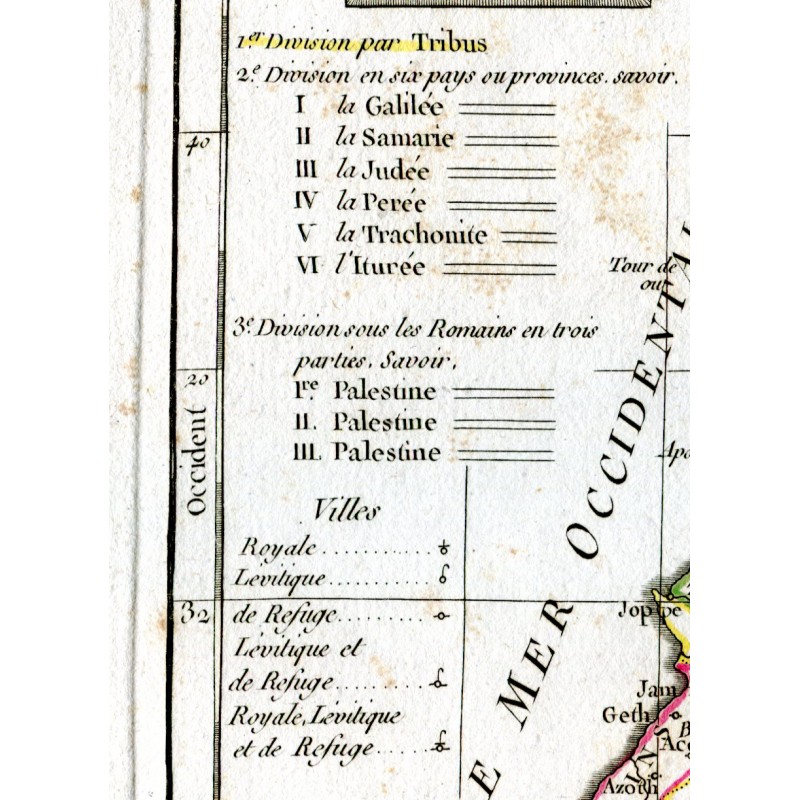 1.er Division par Tribus
2.e Division en six pays ou provinces. savoir.
I la Galilée
II la Samarie
III la Judée
IV la Perée
V la Trachonite
VI l'Iturée
3.e Division sous les Romains en trois
parties. Savoir,
I.re Palestine
II. Palestine
III. Palestine
Villes
Royale
Lévitique
de Refuge
Lévitique et
de Refuge
Royale, Lévitique
et de Refuge
40
20
Occident
32
Tour de
ou
MER OCCIDENTAL
E
Apo
Joppe
Jam
Geth
Azoth